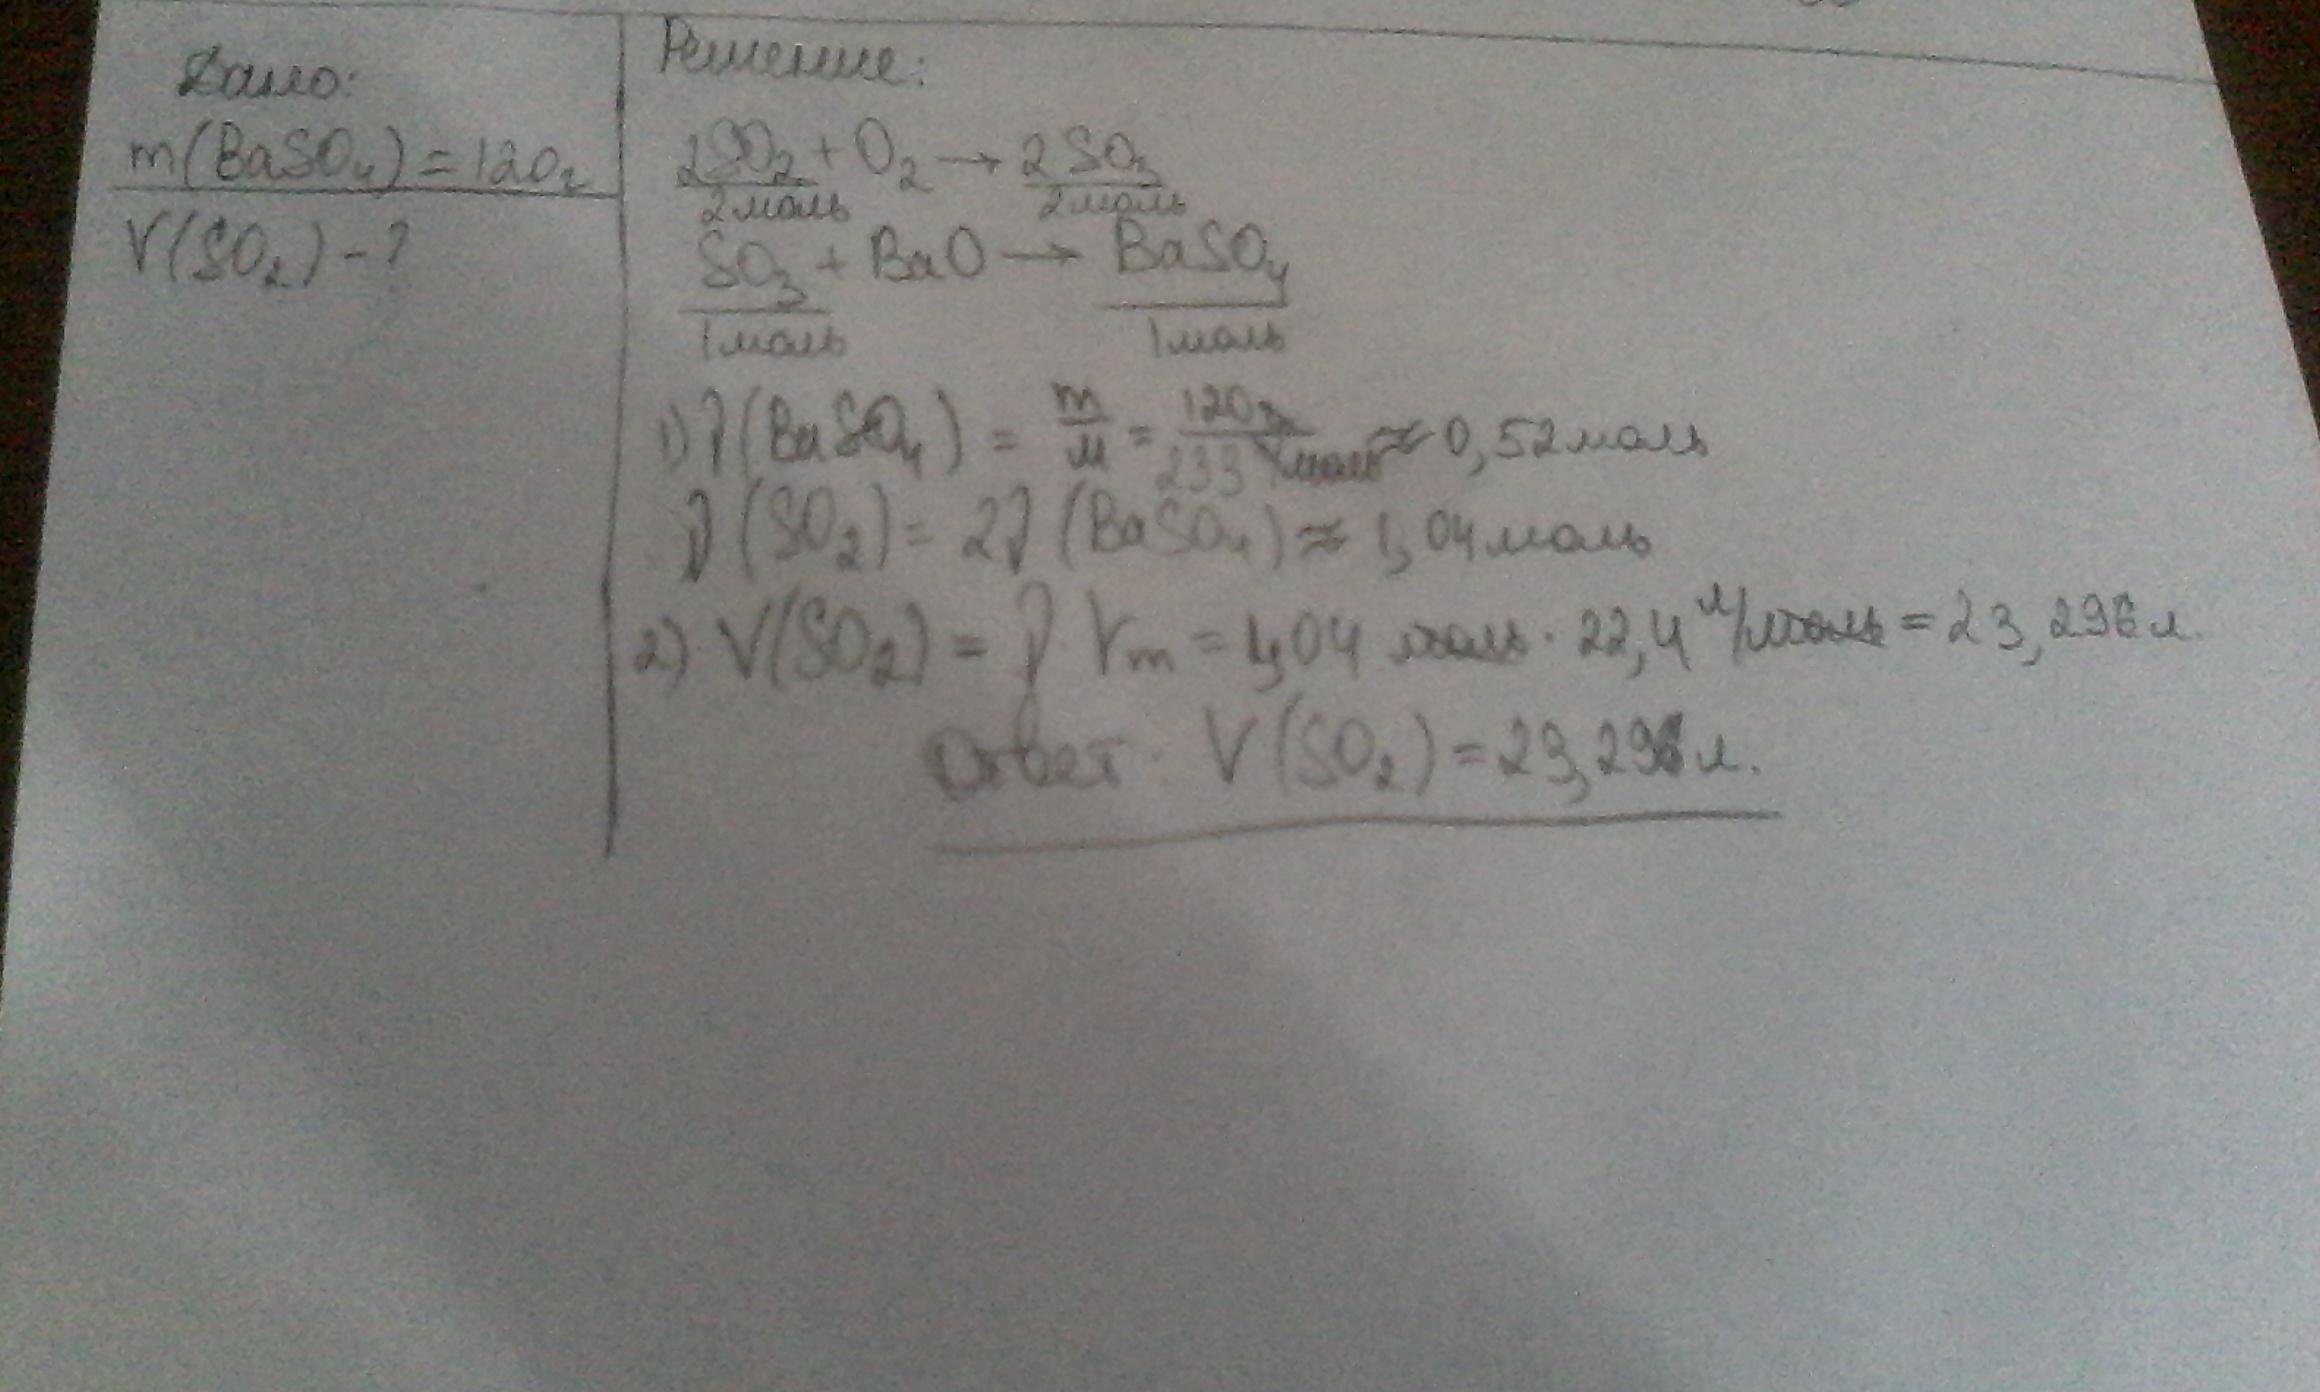 Дано:
m(BaSO₄) = 120г
V(SO₂) - ?
Решение:
2SO₂ + O₂ → 2SO₃
2моль 2моль
SO₃ + BaO → BaSO₄
1моль 1моль
1) ν(BaSO₄) = m/M = 120г/233 г/моль ≈ 0,52моль
ν(SO₂) = 2ν(BaSO₄) ≈ 1,04моль
2) V(SO₂) = ν·Vm = 1,04 моль · 22,4 л/моль = 23,296 л.
Ответ: V(SO₂) = 23,296 л.